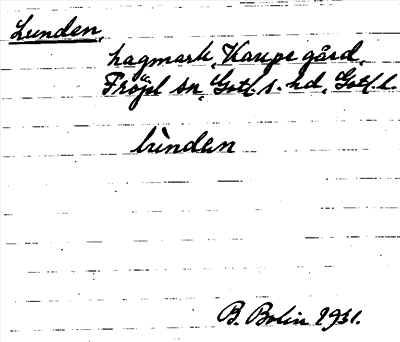 Lunden,
hagmark, Kaupe gård,
Fröjel sn, Gotl. s. hd, Gotl. l.
lùnden
B. Bolin 1931.